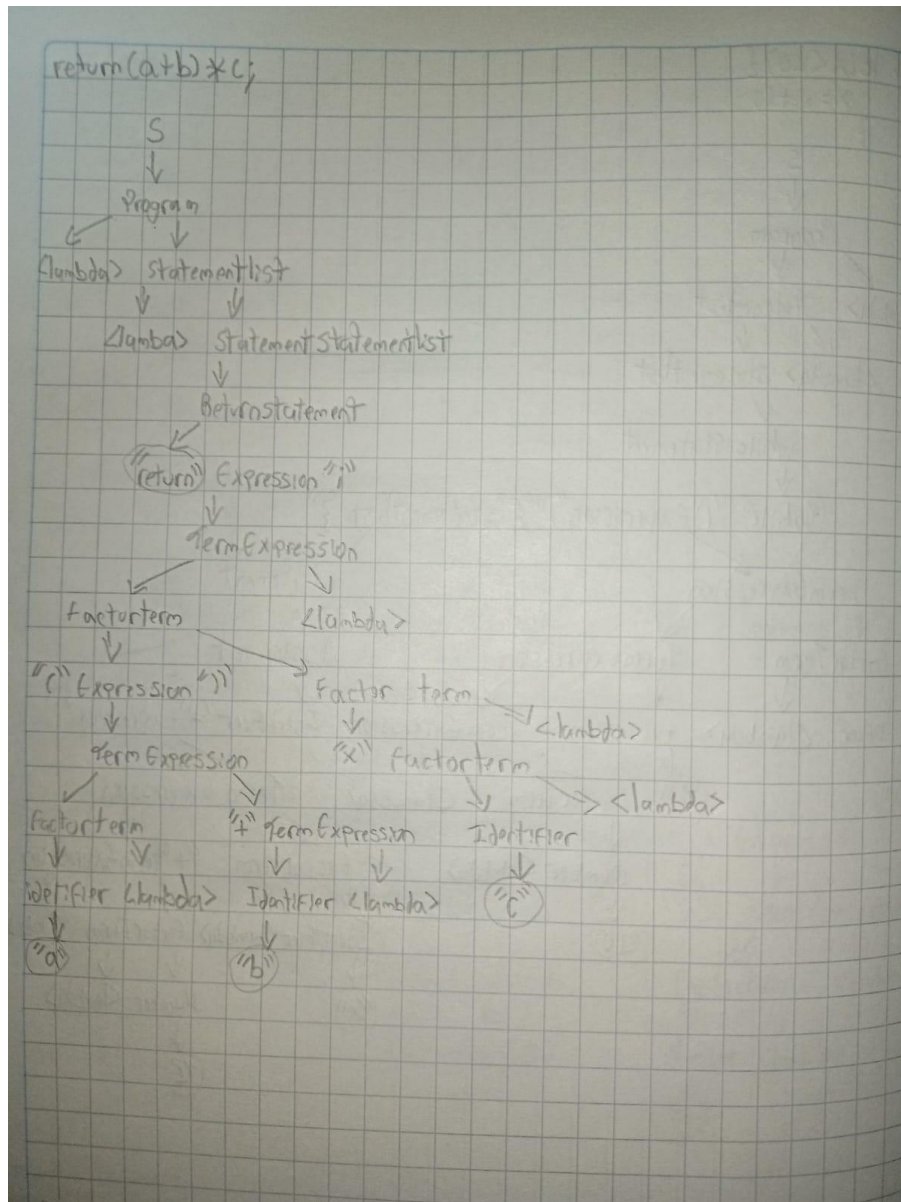 return(a+b)*c;
S
Program
<lambda> Statementlist
<lamba> Statement Statementlist
Returnstatement
"return" Expression ";"
TermExpression
Factorterm <lambda>
"(" Expression ")" Factor term <lambda>
TermExpression "*" Factorterm <lambda>
Factorterm "+" TermExpression Identifier
Identifier <lambda> Identifier <lambda> "c"
"a" "b"